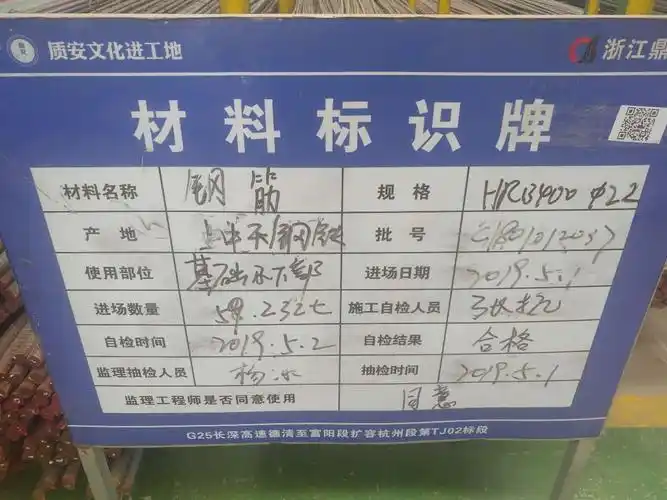 质安文化进工地
浙江鼎
材料标识牌
材料名称 钢筋 规格 HRB400 φ22
产地 批号 C1801012037
使用部位 基础及下部 进场日期 2019.5.1
进场数量 59.232t 施工自检人员
自检时间 2019.5.2 自检结果 合格
监理抽检人员 杨冰 抽检时间 2019.5.1
监理工程师是否同意使用 同意
G25长深高速德清至富阳段扩容杭州段第TJ02标段